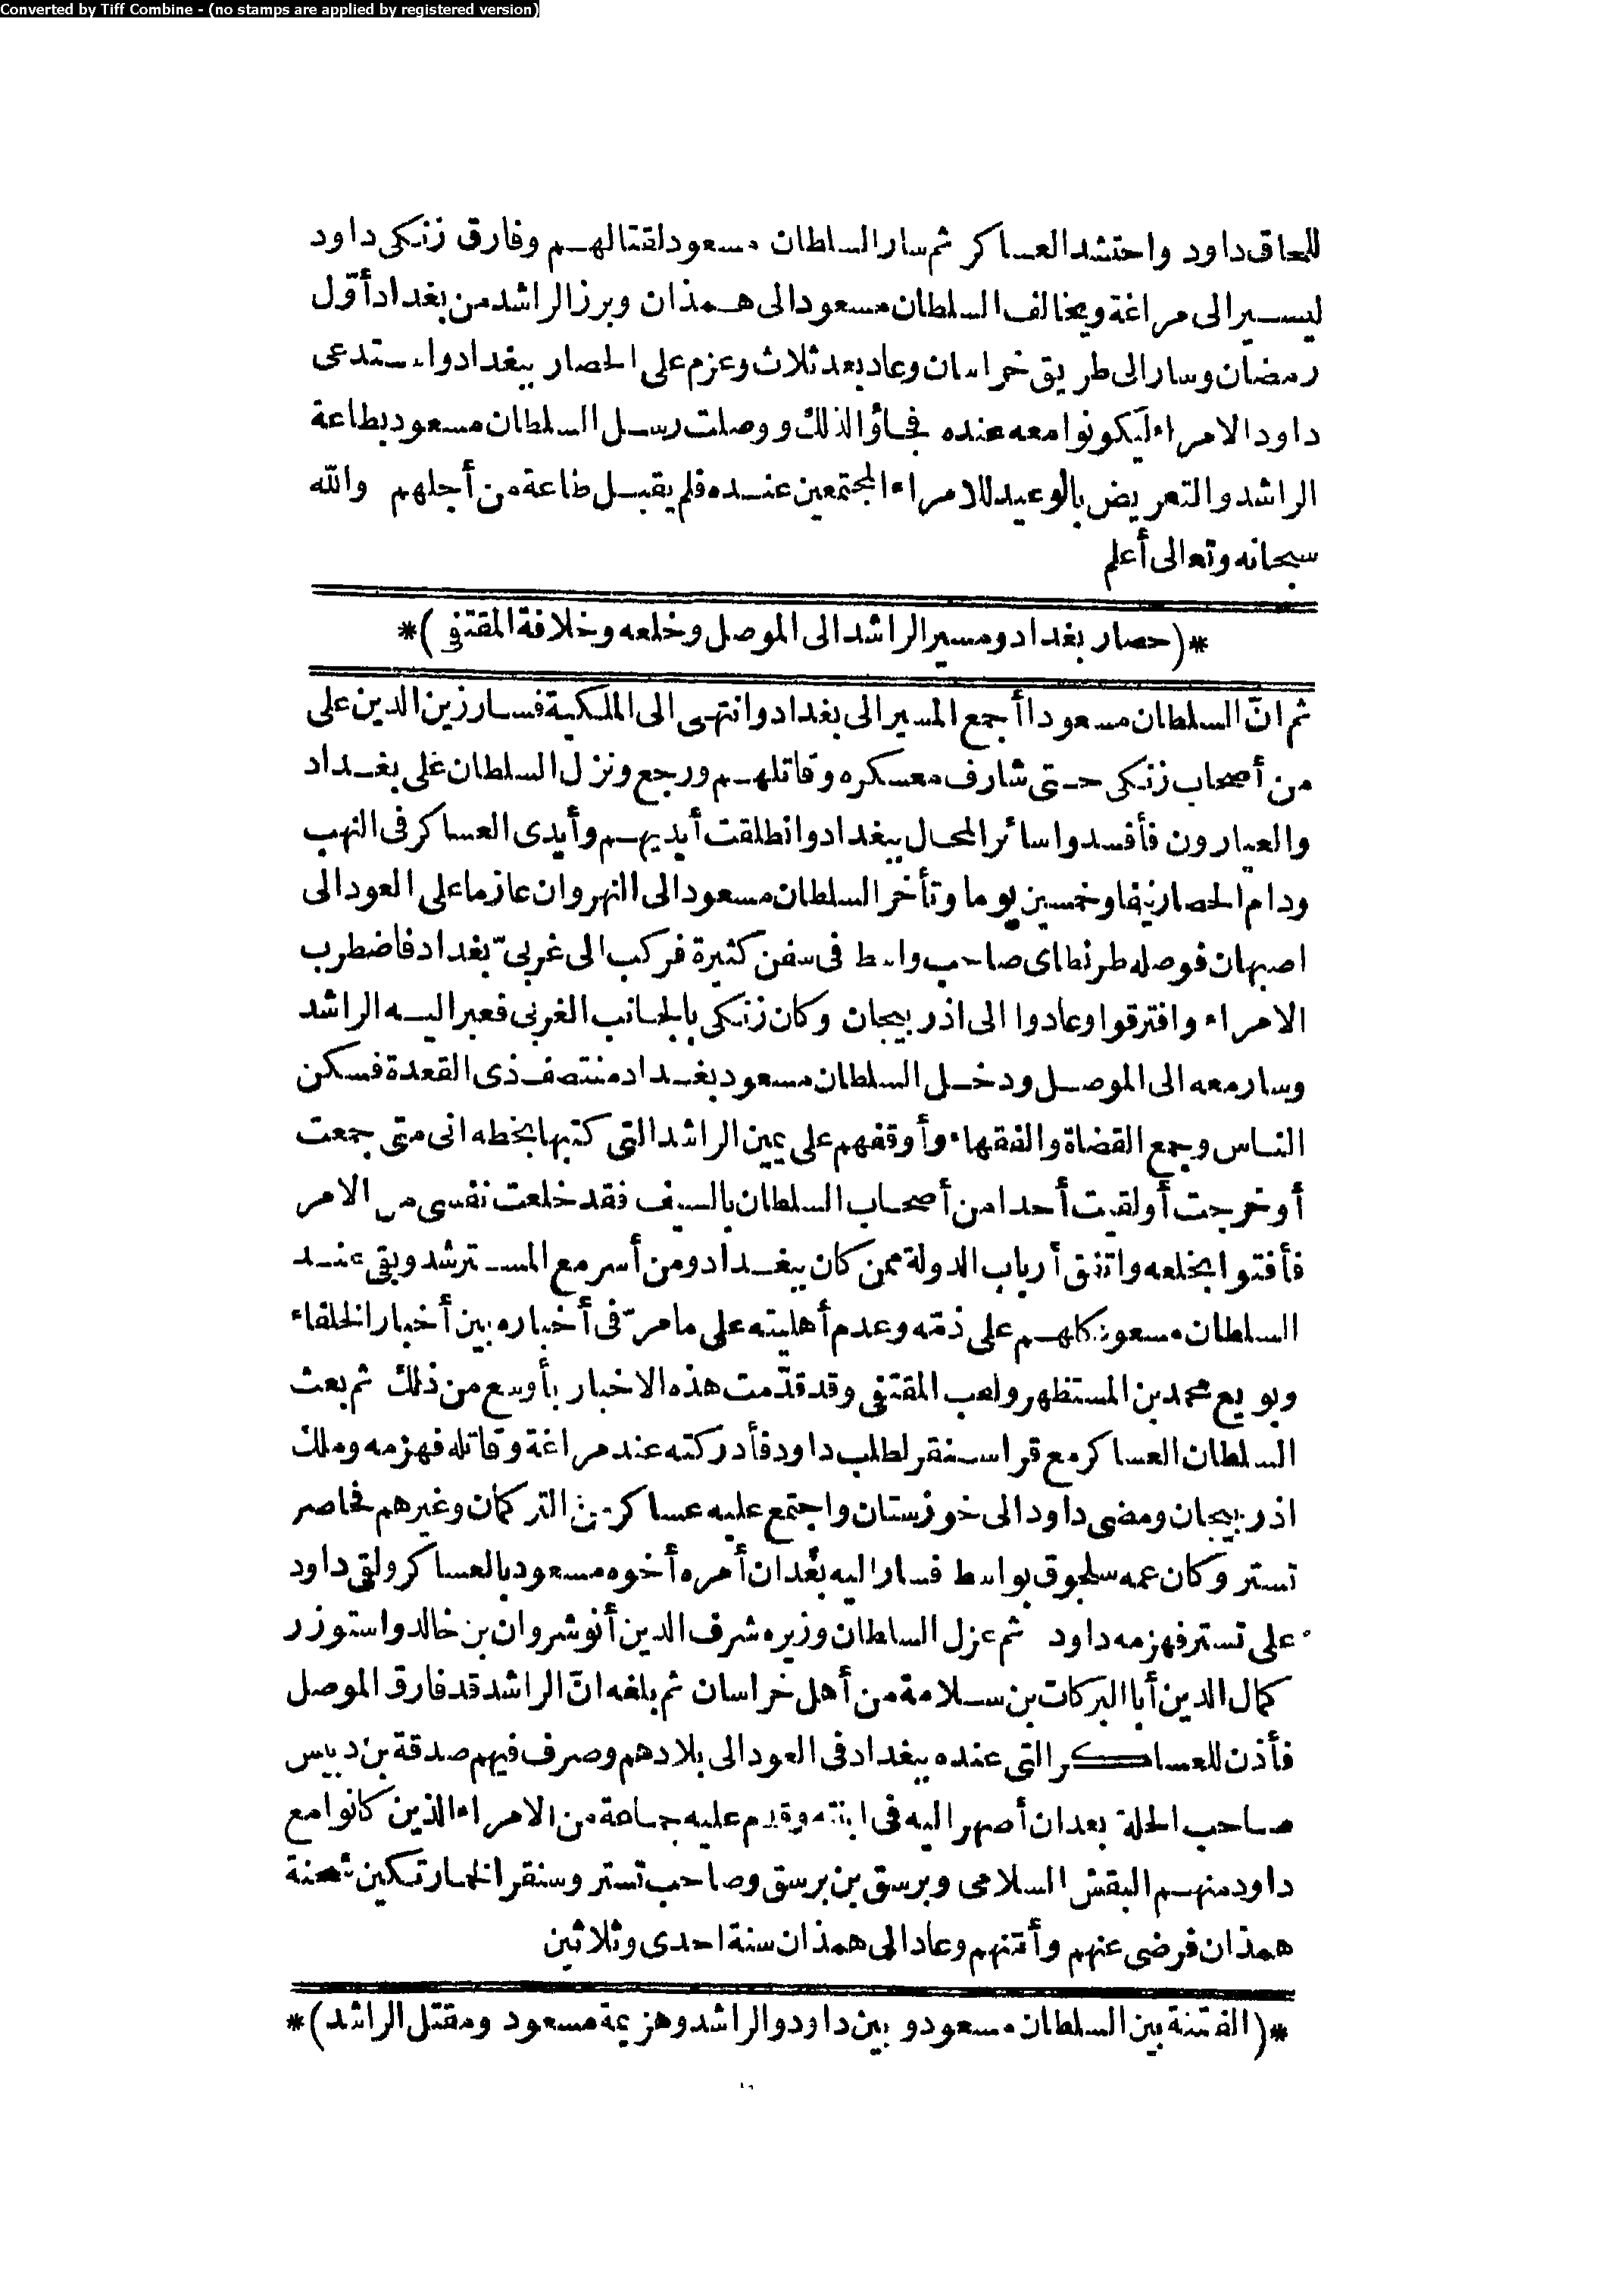 Converted by Tiff Combine - (no stamps are applied by registered version)
للحاق داود واحتشد العساكر ثم سار السلطان مسعود لقتالهم وفارق زنكى داود
ليسير الى مراغة ويخالف السلطان مسعود الى همذان وبرز الراشد من بغداد أوّل
رمضان وسار الى طريق خراسان وعاد بعد ثلاث وعزم على الحصار ببغداد واستدعى
داود الامراء ليكونوا معه عنده فجاؤا لذلك ووصلت رسل السلطان مسعود بطاعة
الراشد والتعريض بالوعيد للامراء المجتمعين عنده فلم يقبل طاعة من أجلهم والله
سبحانه وتعالى أعلم
*(حصار بغداد ومسير الراشد الى الموصل وخلعه وخلافة المقتفى)*
ثم انّ السلطان مسعودا أجمع المسير الى بغداد وانتهى الى الملكية فسار زين الدين على
من أصحاب زنكى حتى شارف معسكره وقاتلهم ورجع ونزل السلطان على بغداد
والعيارون فأفسدوا سائر المحال ببغداد وانطلقت أيديهم وأيدى العساكر فى النهب
ودام الحصار نيفا وخمسين يوما وتأخر السلطان مسعود الى النهروان عازما على العود الى
اصبهان فوصله طرنطاى صاحب واسط فى سفن كثيرة فركب الى غربىّ بغداد فاضطرب
الامراء وافترقوا وعادوا الى اذربيجان وكان زنكى بالجانب الغربى فعبر اليه الراشد
وسار معه الى الموصل ودخل السلطان مسعود بغداد منتصف ذى القعدة فسكن
الناس وجمع القضاة والفقهاء وأوقفهم على يمين الراشد التى كتبها بخطه انى متى جمعت
أو خرجت أو لقيت أحدا من أصحاب السلطان بالسيف فقد خلعت نفسى من الامر
فأفتوا بخلعه واتفق أرباب الدولة ممن كان ببغداد ومن أسر مع المسترشد وبقى عند
السلطان مسعود كلهم على ذمّه وعدم أهليته على ما مرّ فى أخباره بين أخبار الخلفاء
وبويع محمد بن المستظهر ولقب المقتفى وقد قدّمت هذه الاخبار بأوسع من ذلك ثم بعث
السلطان العساكر مع قراسنقر لطلب داود فأدركته عند مراغة وقاتله فهزمه وملك
اذربيجان ومضى داود الى خوزستان واجتمع عليه عساكر من التركمان وغيرهم فحاصر
تستر وكان عمه سلجوق بواسط فسار اليه بعد ان أمره أخوه مسعود بالعساكر ولقى داود
على تستر فهزمه داود ثم عزل السلطان وزيره شرف الدين أنوشروان بن خالد واستوزر
كمال الدين أبا البركات بن سلامة من أهل خراسان ثم بلغه انّ الراشد قد فارق الموصل
فأذن للعساكر التى عنده ببغداد فى العود الى بلادهم وصرف فيهم صدقة بن دبيس
صاحب الحلة بعد ان أصهر اليه فى ابنته وقدم عليه جماعة من الامراء الذين كانوا مع
داود منهم البقش السلامى وبرسق بن برسق وصاحب تستر وسنقر الخمارتكين شحنة
همذان فرضى عنهم وأمّنهم وعاد الى همذان سنة احدى وثلاثين
*(الفتنة بين السلطان مسعود وبين داود والراشد وهزيمة مسعود ومقتل الراشد)*